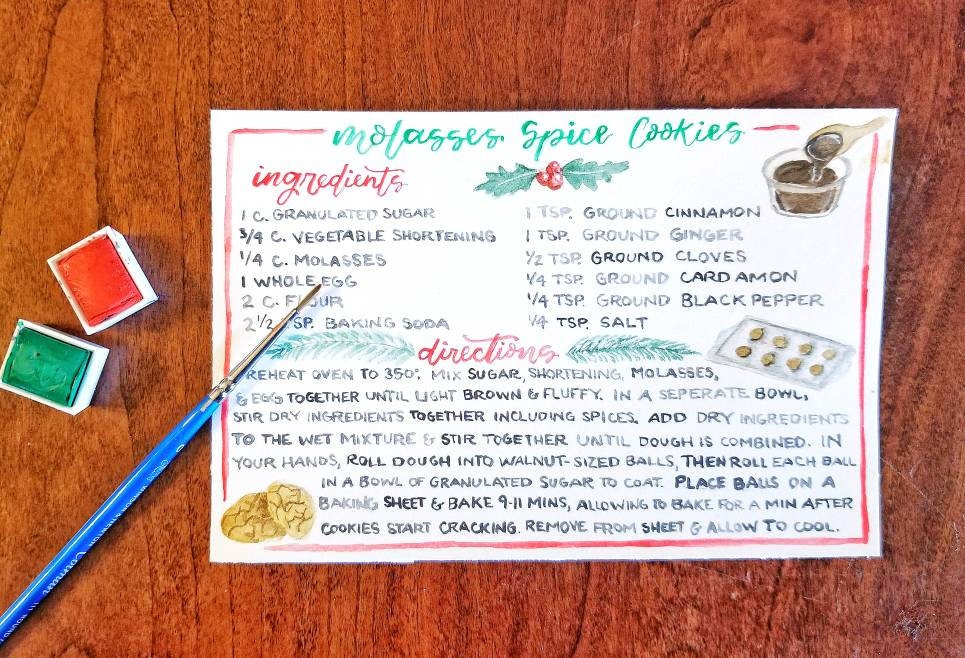 molasses Spice Cookies
ingredients
1 C. GRANULATED SUGAR
3/4 C. VEGETABLE SHORTENING
1/4 C. MOLASSES
1 WHOLE EGG
2 C. FLOUR
2 1/2 TSP. BAKING SODA
1 TSP. GROUND CINNAMON
1 TSP. GROUND GINGER
1/2 TSP. GROUND CLOVES
1/4 TSP. GROUND CARDAMON
1/4 TSP. GROUND BLACK PEPPER
1/4 TSP. SALT
directions
PREHEAT OVEN TO 350°. MIX SUGAR, SHORTENING, MOLASSES,
& EGG TOGETHER UNTIL LIGHT BROWN & FLUFFY. IN A SEPERATE BOWL,
STIR DRY INGREDIENTS TOGETHER INCLUDING SPICES. ADD DRY INGREDIENTS
TO THE WET MIXTURE & STIR TOGETHER UNTIL DOUGH IS COMBINED. IN
YOUR HANDS, ROLL DOUGH INTO WALNUT-SIZED BALLS, THEN ROLL EACH BALL
IN A BOWL OF GRANULATED SUGAR TO COAT. PLACE BALLS ON A
BAKING SHEET & BAKE 9-11 MINS, ALLOWING TO BAKE FOR A MIN AFTER
COOKIES START CRACKING. REMOVE FROM SHEET & ALLOW TO COOL.